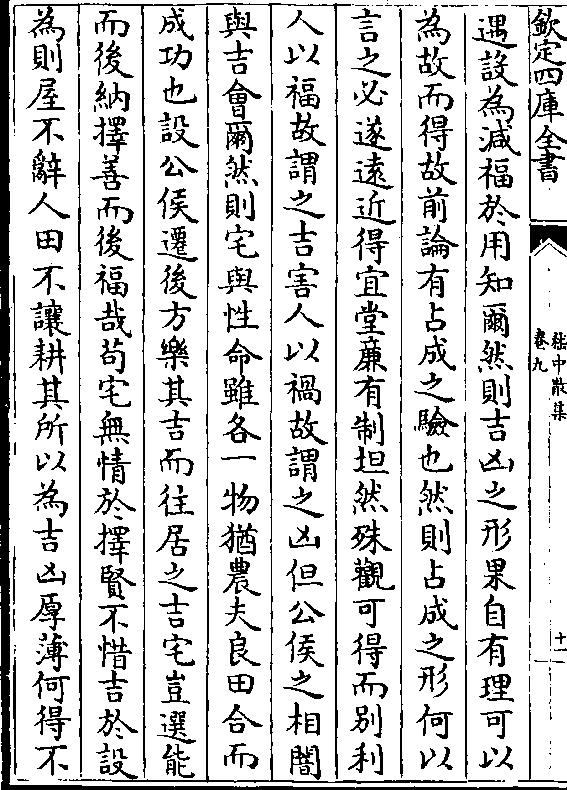 欽定四庫全書
嵇中散集
卷九
十一
遇設為減福於用知爾然則吉凶之形果自有理可以
為故而得故前論有占成之驗也然則占成之形何以
言之必遂遠近得宜堂廉有制坦然殊觀可得而別利
人以福故謂之吉害人以禍故謂之凶但公侯之相闇
與吉會爾然則宅與性命雖各一物猶農夫良田合而
成功也設公侯遷後方樂其吉而往居之吉宅豈選能
而後納擇善而後福哉苟宅無情於擇賢不惜吉於設
為則屋不辭人田不讓耕其所以為吉凶厚薄何得不